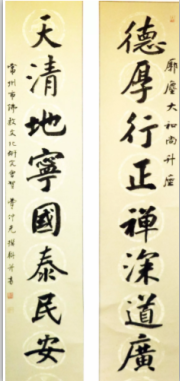 廓塵大和尚升座
德厚行正禪深道廣
天清地寧國泰民安
常州市佛教文化研究會賀